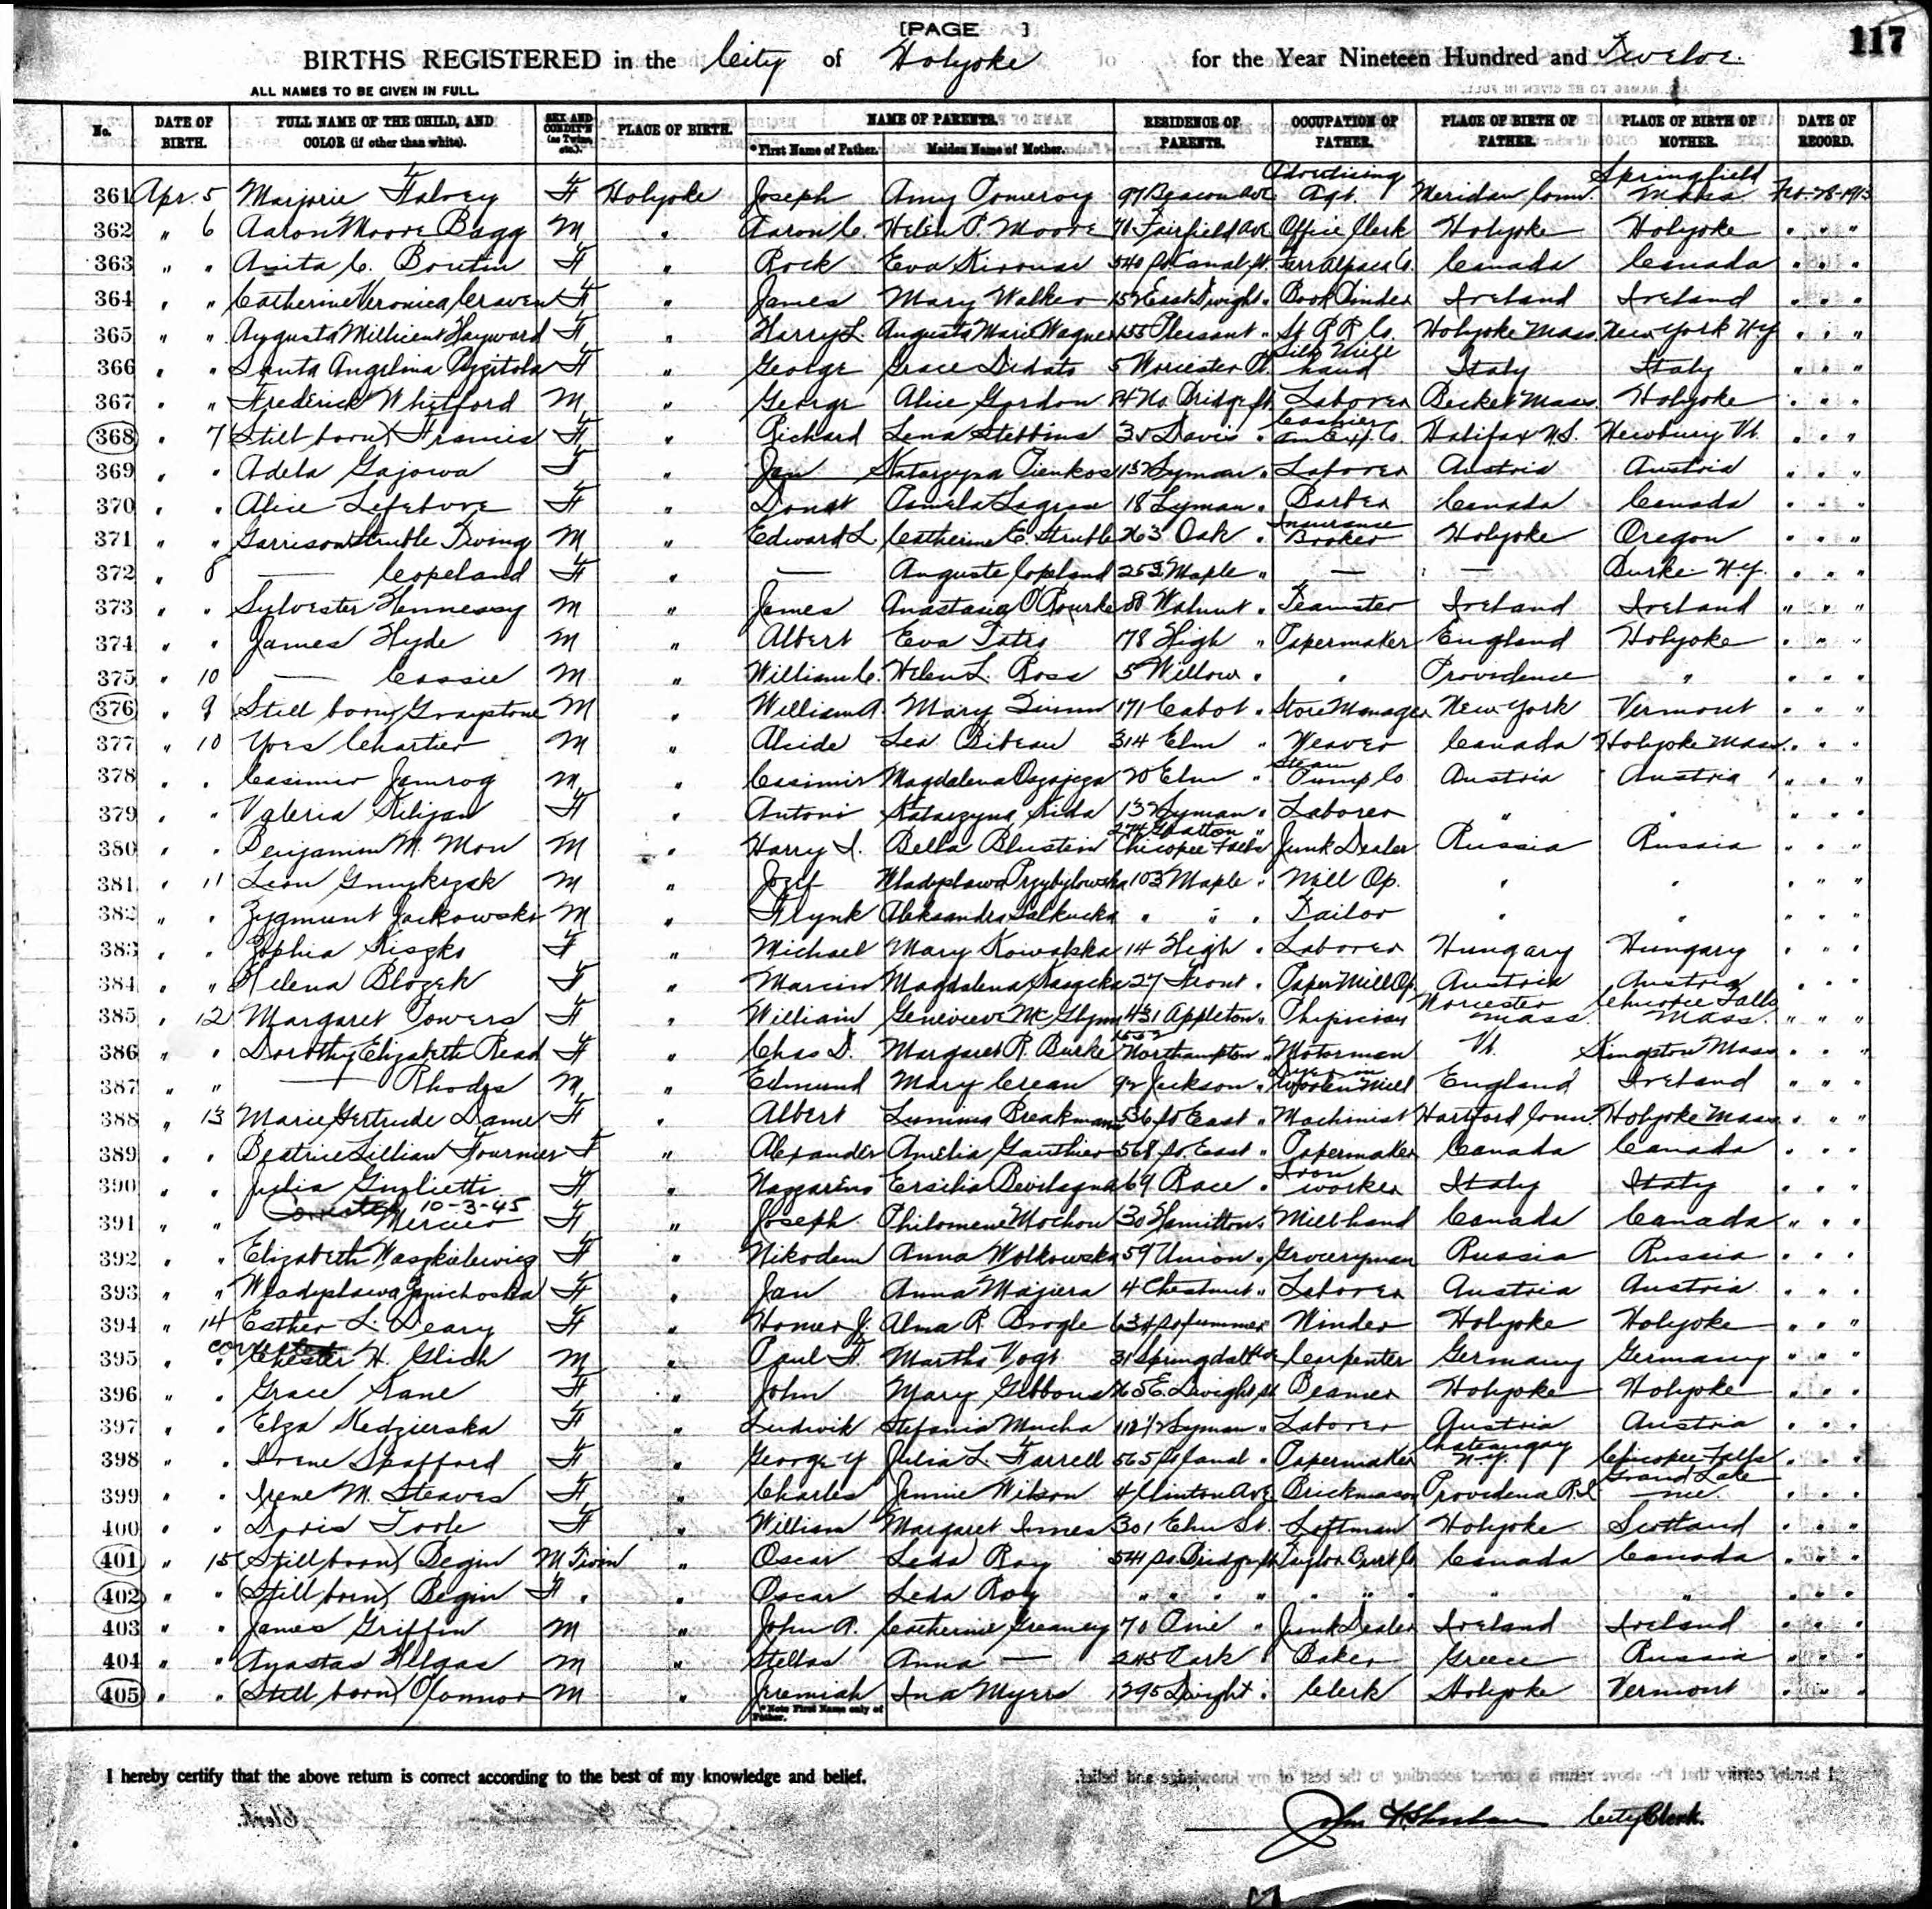 [PAGE ]
117
BIRTHS REGISTERED in the City of Holyoke for the Year Nineteen Hundred and Twelve.
ALL NAMES TO BE GIVEN IN FULL.
No. DATE OF BIRTH. FULL NAME OF THE CHILD, AND COLOR (if other than white). SEX AND CONDIT'N (as Twins, etc.). PLACE OF BIRTH. NAME OF PARENTS. *First Name of Father. Maiden Name of Mother. RESIDENCE OF PARENTS. OCCUPATION OF FATHER. PLACE OF BIRTH OF FATHER. PLACE OF BIRTH OF MOTHER. DATE OF RECORD.
361 Apr. 5 Marjorie Falvey F Holyoke Joseph Amy Pomeroy 97 Beacon Ave Advertising Agt. Meridan Conn. Springfield Mass Feb-28-1913
362 " 6 Aaron Moore Bagg M " Aaron C. Helen P. Moore 71 Fairfield Ave Office Clerk Holyoke Holyoke " " "
363 " " Anita C. Boutin F " Rock Eva Kirouac 540 So Canal St. Farr Alpaca Co. Canada Canada " " "
364 " " Catherine Veronica Craven F " James Mary Walker 152 East Dwight " Book Binder Ireland Ireland " " "
365 " " Augusta Millicent Hayward F " Harry L. Augusta Marie Wagner 155 Pleasant " St R R Co. Holyoke Mass New York N.Y. " " "
366 " " Santa Angelina F " George Grace Didato 5 Worcester Pl. Silk Mill hand Italy Italy " " "
367 " " Frederick Whitford M " George Alice Gordon 24 No Bridge St. Laborer Becket Mass. Holyoke " " "
368 " 7 (Still born) Francis F " Richard Lena Stebbins 35 Davis " Cashier Am Exp. Co. Halifax N.S. Newbury Vt. " " "
369 " " Adela Gajowa F " Jan Katarzyna Pienkos 152 Lyman " Laborer Austria Austria " " "
370 " " Alice Lefebvre F " Donat Pamela 18 Lyman " Barber Canada Canada " " "
371 " " Garrison Struble Twing M " Edward L. Catherine E. Struble 263 Oak " Insurance Broker Holyoke Oregon
372 " 8 — Copeland F " — Auguste Copeland 252 Maple " — — Burke N.Y. " " "
373 " " Sylvester Hennessy M " James Anastasia O'Rourke 88 Walnut " Teamster Ireland Ireland " " "
374 " " James Hyde M " Albert Eva Tates 178 High " Papermaker England Holyoke " " "
375 " 10 — Cassie M " William C. Helen L. Ross 5 Willow " " Providence " " " "
376 " 9 (Still born) Graystone M " William A. Mary Quinn 171 Cabot " Store Manager New York Vermont " " "
377 " 10 Yves Chartier M " Alcide Lea Bibeau 314 Elm " Weaver Canada Holyoke Mass. " " "
378 " " Casimir Jamrog M " Casimir Magdalena 20 Elm " Steam Pump Co. Austria Austria " " "
379 " " Valeria Kilijan F " Antoni Katarzyna Kida 132 Lyman " Laborer " " " " "
380 " " Benjamin M. Mon M " Harry I. Bella Blustein 274 Grattan " Chicopee Falls Junk Dealer Russia Russia " " "
381 " 11 Leon M " Jozef Wladyslawa Przybylowska 103 Maple " Mill Op. " " " " "
382 " " Zygmunt Jackowski M " Aleksandra " " " Tailor " " " " "
383 " " Zophia Kiszko F " Michael Mary Kowalska 14 High " Laborer Hungary Hungary " " "
384 " " Helena Blozek F " Marcin Magdalena 27 Front " Paper Mill Op. Austria Austria " " "
385 " 12 Margaret Powers F " William Genevieve McGlynn 431 Appleton " Physician Worcester Mass. Chicopee Falls Mass. " " "
386 " " Dorothy Elizabeth Read F " Chas D. Margaret R. Burke 1553 Northampton " Motorman Vt. Kingston Mass " " "
387 " " — Rhodes M " Edmund Mary Crean 92 Jackson " Dyer in Woolen Mill England Ireland " " "
388 " 13 Marie Gertrude Dame F " Albert 536 So East " Machinist Hartford Conn. Holyoke Mass " " "
389 " " Beatrice Lillian Fournier F " Alexander Amelia Gauthier 568 So. East " Papermaker Canada Canada " " "
390 " " Julia Giulietti F " Nazzareno Ersilia Bevilaqua 69 Race " Iron worker Italy Italy " " "
391 " " Corrected 10-3-45 Mercier F " Joseph Philomene Mochon 30 Hamilton " Mill-hand Canada Canada " " "
392 " " Elizabeth Waszkielewicz F " Nikodem Anna Wolkowska 59 Union " Groceryman Russia Russia " " "
393 " " Wladyslawa F " Jan Anna Majiera 4 Chestnut " Laborer Austria Austria " " "
394 " 14 Esther L. Deary F " Homer J. Alma R Brogle 634 So Summer Winder Holyoke Holyoke " " "
395 " " corrected Chester H. Glich M " Paul F. Martha Vogt 31 Springdale Ave Carpenter Germany Germany " " "
396 " " Grace Kane F " John Mary Gibbons 265 E. Dwight St Beamer Holyoke Holyoke " " "
397 " " Elza Kedzierska F " Ludwik Stefania Mucha 112 1/2 Lyman " Laborer Austria Austria " " "
398 " " Irene Spafford F " George Y Julia L. Farrell 565 So Canal " Papermaker Chateaugay N.Y. Chicopee Falls " " "
399 " " Irene M. Steaves F " Charles Jennie Wilson 4 Clinton Ave Brickmason Providence R.I. Grand Lake Me. " " "
400 " " Doris Toole F " William Margaret Innes 301 Elm St. Loftman Holyoke Scotland " " "
401 " 15 (Stillborn) Begin M Twin " Oscar Leda Roy 541 So. Bridge St Taylor Burt Co Canada Canada " " "
402 " " (Still born) Begin F " " Oscar Leda Roy " " " " " " " " " " "
403 " " James Griffin M " John A. Catherine Greaney 70 Pine " Junk Dealer Ireland Ireland " " "
404 " " Anastas Helgas M " Stellas Anna — 245 Park Baker Greece Russia " " "
405 " " (Still born) O'Connor M " Jeremiah Ina Myers 1295 Dwight " Clerk Holyoke Vermont " " "
*Note First Name only of Father.
I hereby certify that the above return is correct according to the best of my knowledge and belief.
John F. Sheehan City Clerk.